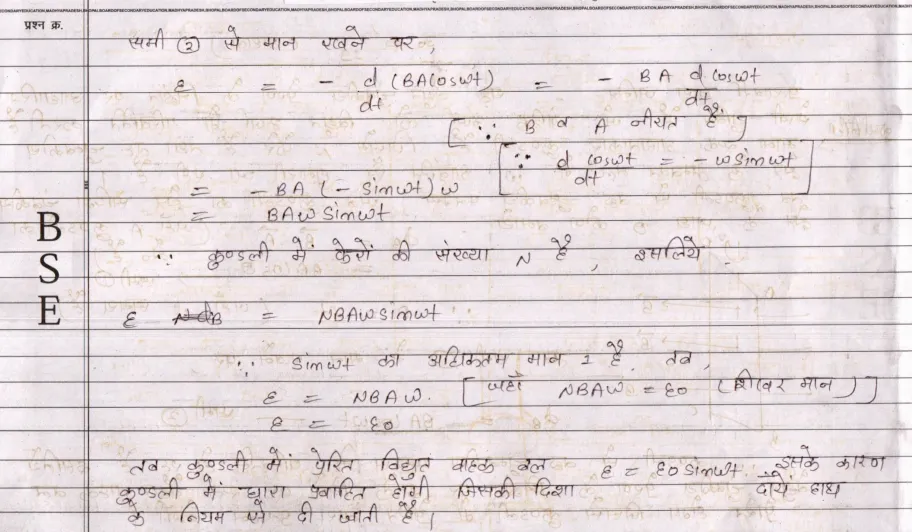 प्रश्न क्र.
समी (2) से मान रखने पर,
ε = - d (BA cosωt) / dt = - BA d cosωt / dt
[∵ B व A नीयत हैं]
[∵ d cosωt / dt = - ω sinωt]
= - BA (- sinωt) ω
= BAω sinωt
∵ कुण्डली में फेरों की संख्या N है, इसलिये
ε = NBAω sinωt
∵ sinωt का अधिकतम मान 1 है, तब,
ε = NBAω. [जहाँ NBAω = ε0 (शिखर मान)]
ε = ε0
तब कुण्डली में प्रेरित विद्युत वाहक बल ε = ε0 sinωt. इसके कारण
कुण्डली में धारा प्रवाहित होगी जिसकी दिशा दायें हाथ
के नियम से दी जाती है।
BSE